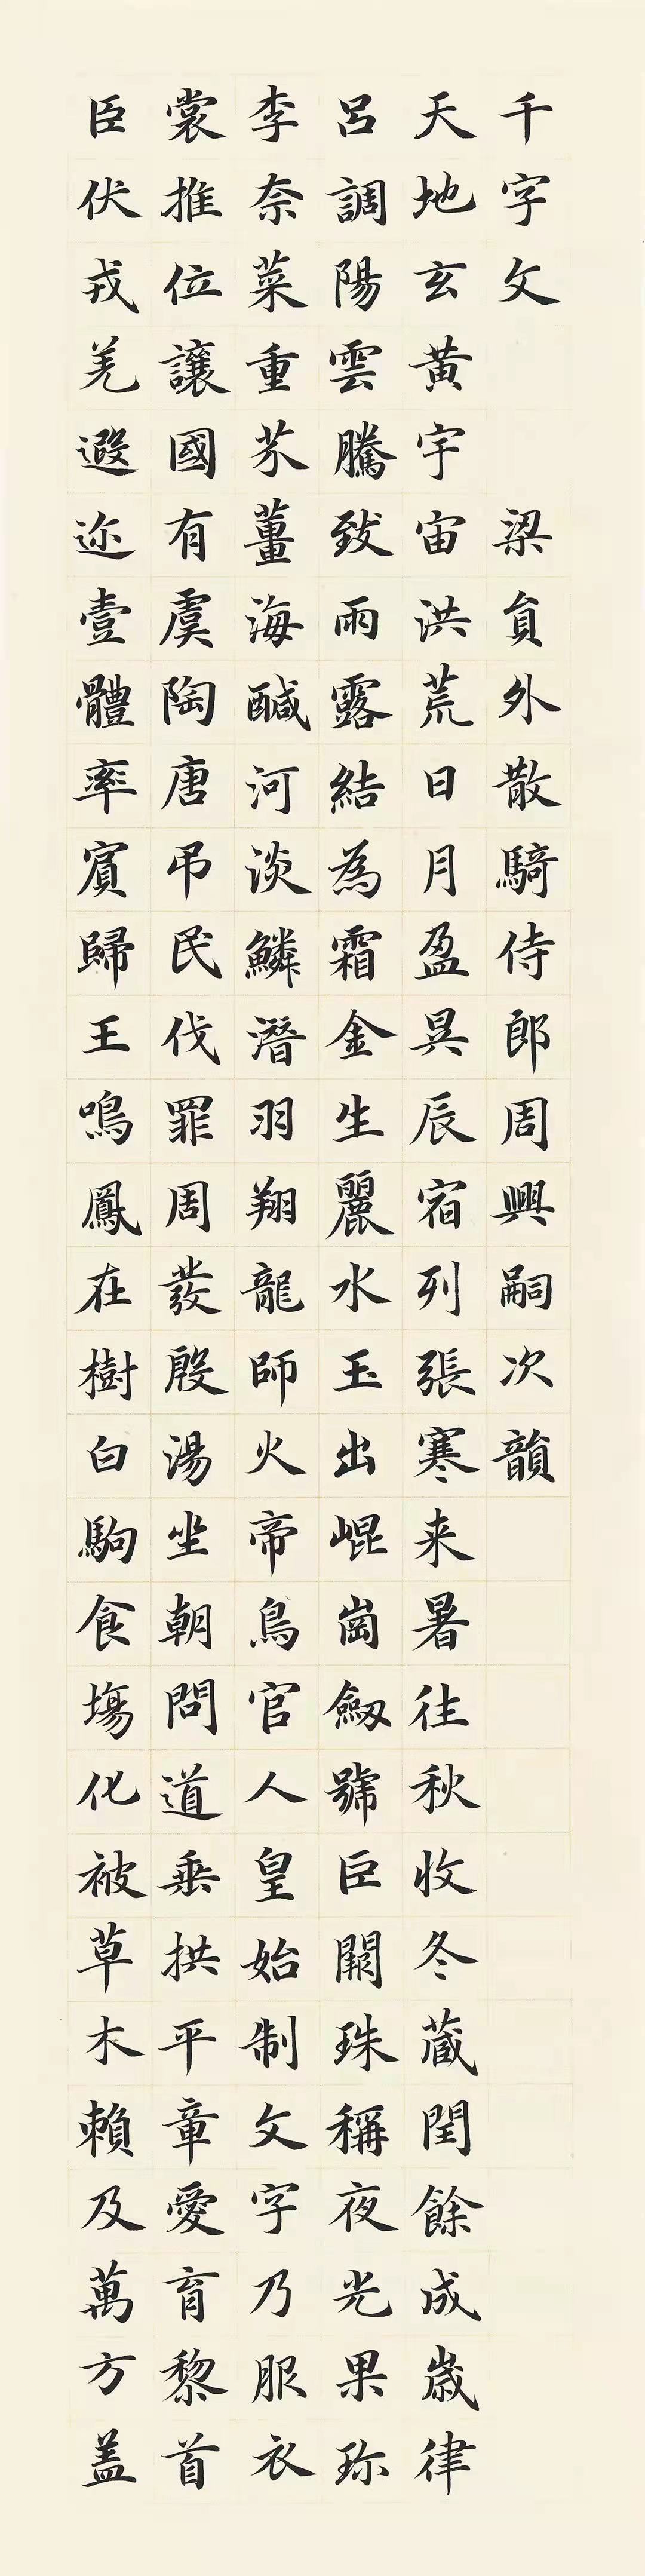 千字文 梁員外散騎侍郎周興嗣次韻
天地玄黃宇宙洪荒日月盈昃辰宿列張寒来暑往秋收冬藏閏餘成歲律
呂調陽雲騰致雨露結為霜金生麗水玉出崐崗劒號巨闕珠稱夜光果珎
李奈菜重芥薑海醎河淡鱗潛羽翔龍師火帝鳥官人皇始制文字乃服衣
裳推位讓國有虞陶唐弔民伐罪周發殷湯坐朝問道垂拱平章愛育黎首
臣伏戎羌遐迩壹體率賓歸王鳴鳳在樹白駒食場化被草木賴及萬方盖